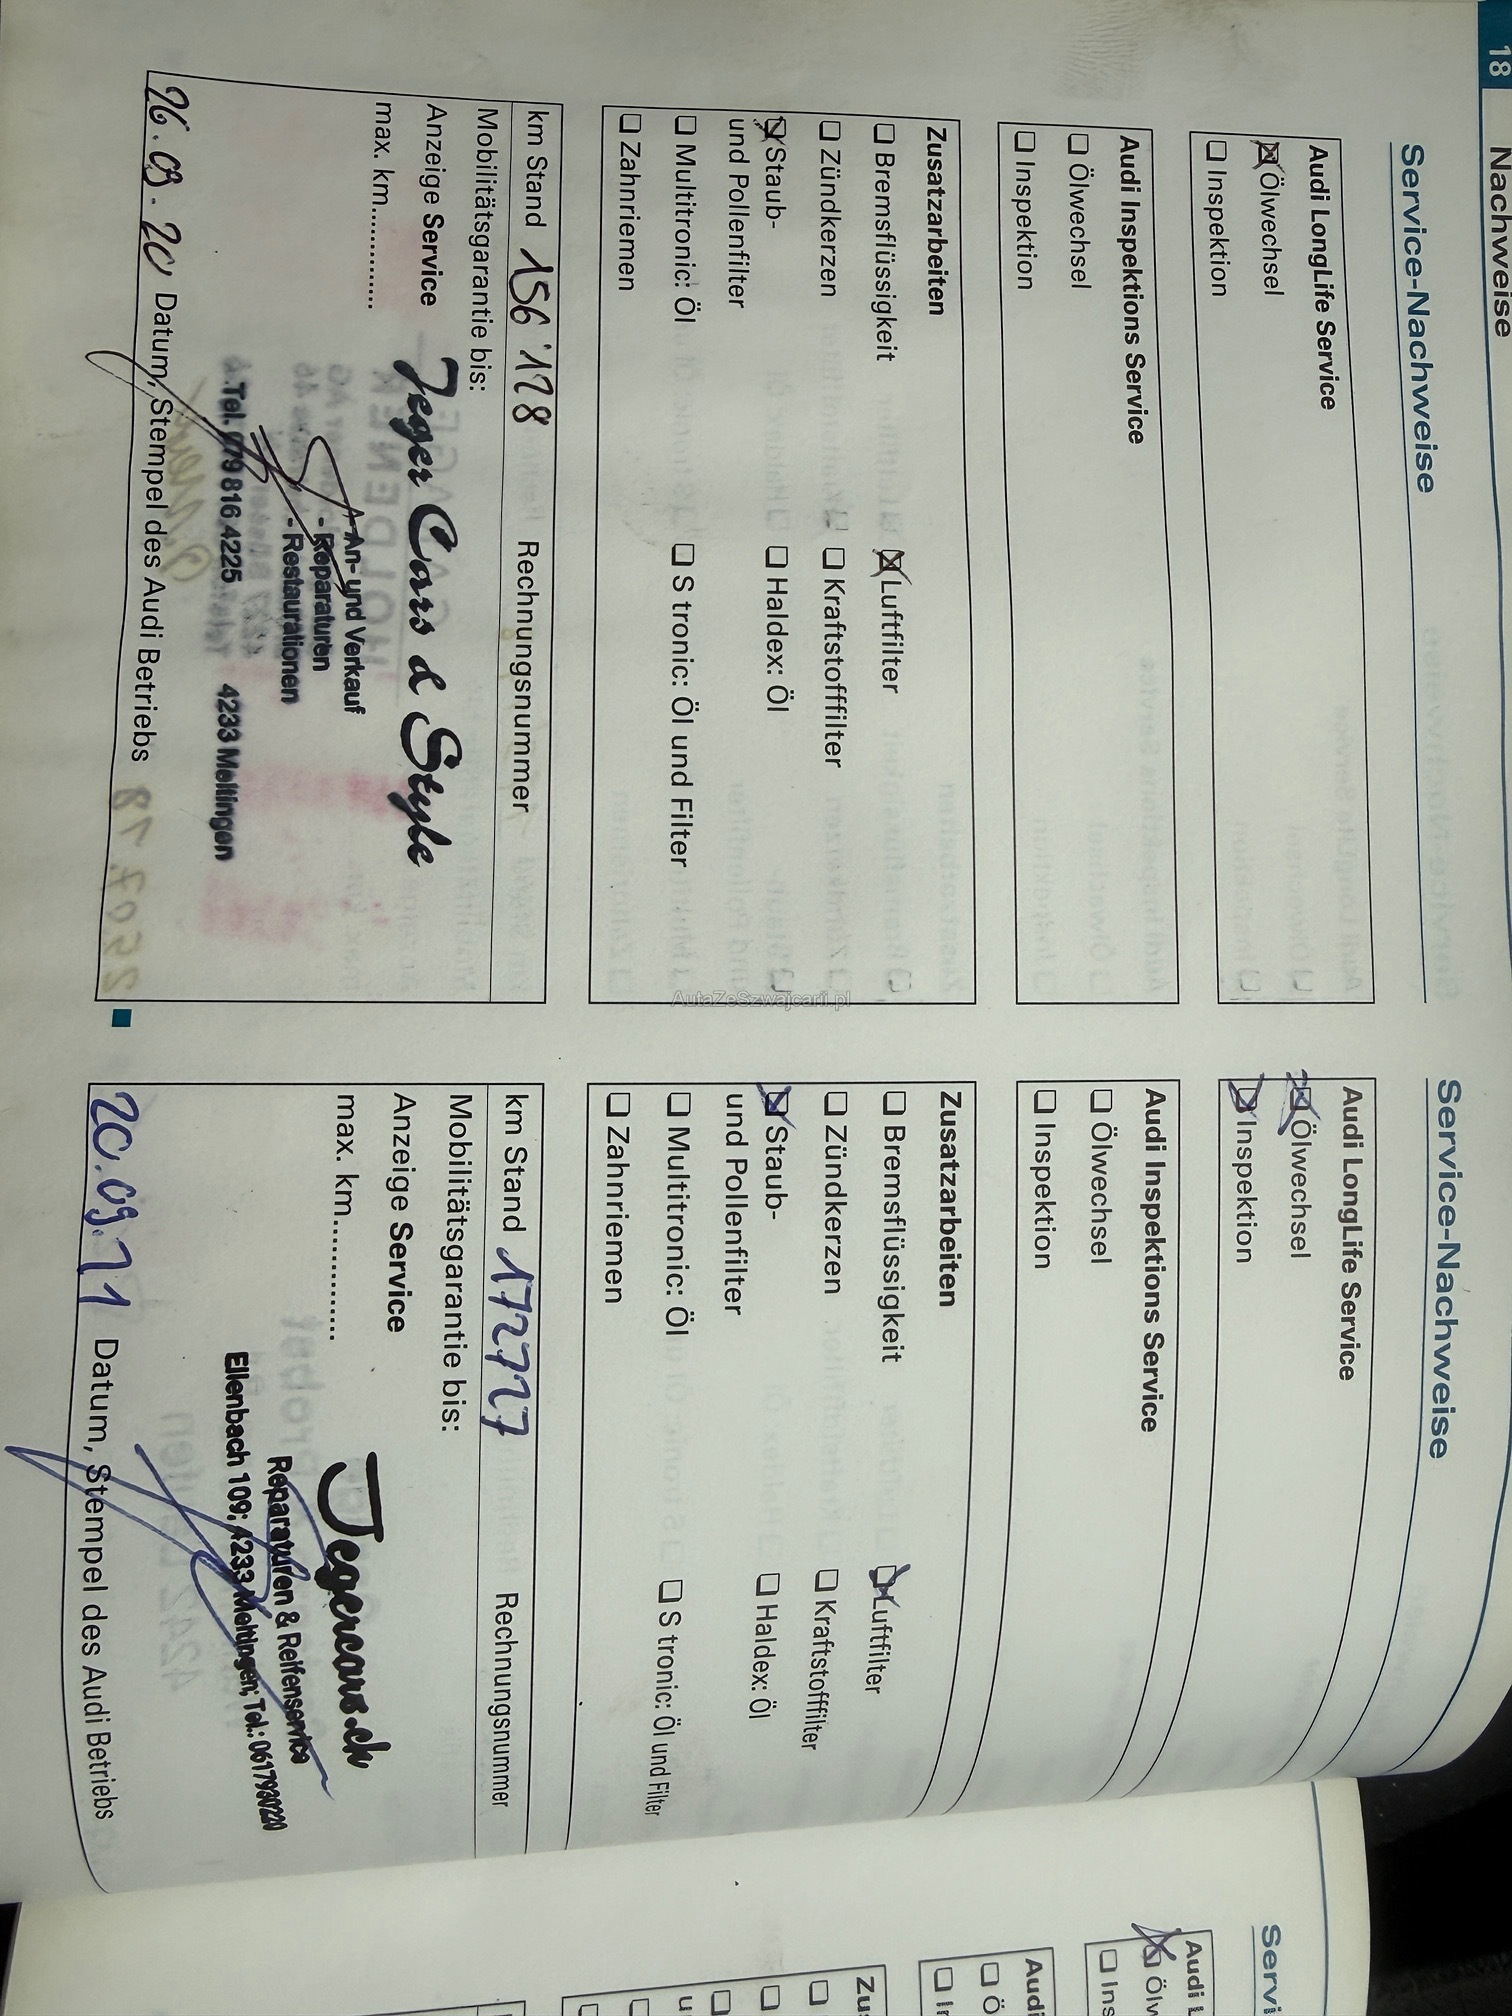 18
Nachweise
Service-Nachweise
Audi LongLife Service
☒ Ölwechsel
☐ Inspektion
Audi Inspektions Service
☐ Ölwechsel
☐ Inspektion
Zusatzarbeiten
☐ Bremsflüssigkeit ☒ Luftfilter
☐ Zündkerzen ☐ Kraftstofffilter
☒ Staub- ☐ Haldex: Öl
und Pollenfilter
☐ Multitronic: Öl ☐ S tronic: Öl und Filter
☐ Zahnriemen
km Stand 156'128 Rechnungsnummer
Mobilitätsgarantie bis:
Anzeige Service
max. km............
Jeger Cars & Style
- An- und Verkauf
- Reparaturen
- Restaurationen
Tel. 079 816 4225 4233 Meltingen
26.09.20 Datum, Stempel des Audi Betriebs
Service-Nachweise
Audi LongLife Service
☒ Ölwechsel
☒ Inspektion
Audi Inspektions Service
☐ Ölwechsel
☐ Inspektion
Zusatzarbeiten
☐ Bremsflüssigkeit ☒ Luftfilter
☐ Zündkerzen ☐ Kraftstofffilter
☒ Staub- ☐ Haldex: Öl
und Pollenfilter
☐ Multitronic: Öl ☐ S tronic: Öl und Filter
☐ Zahnriemen
km Stand 172727 Rechnungsnummer
Mobilitätsgarantie bis:
Anzeige Service
max. km..............
Jegercars.ch
Reparaturen & Reifenservice
Ellenbach 109; 4233 Meltingen; Tel.: 0617930220
20.09.21 Datum, Stempel des Audi Betriebs
Servi
Audi L
☒ Ölw
☐ Ins
Audi
☐ Ö
☐ In
Zus
AutaZeSzwajcarii.pl